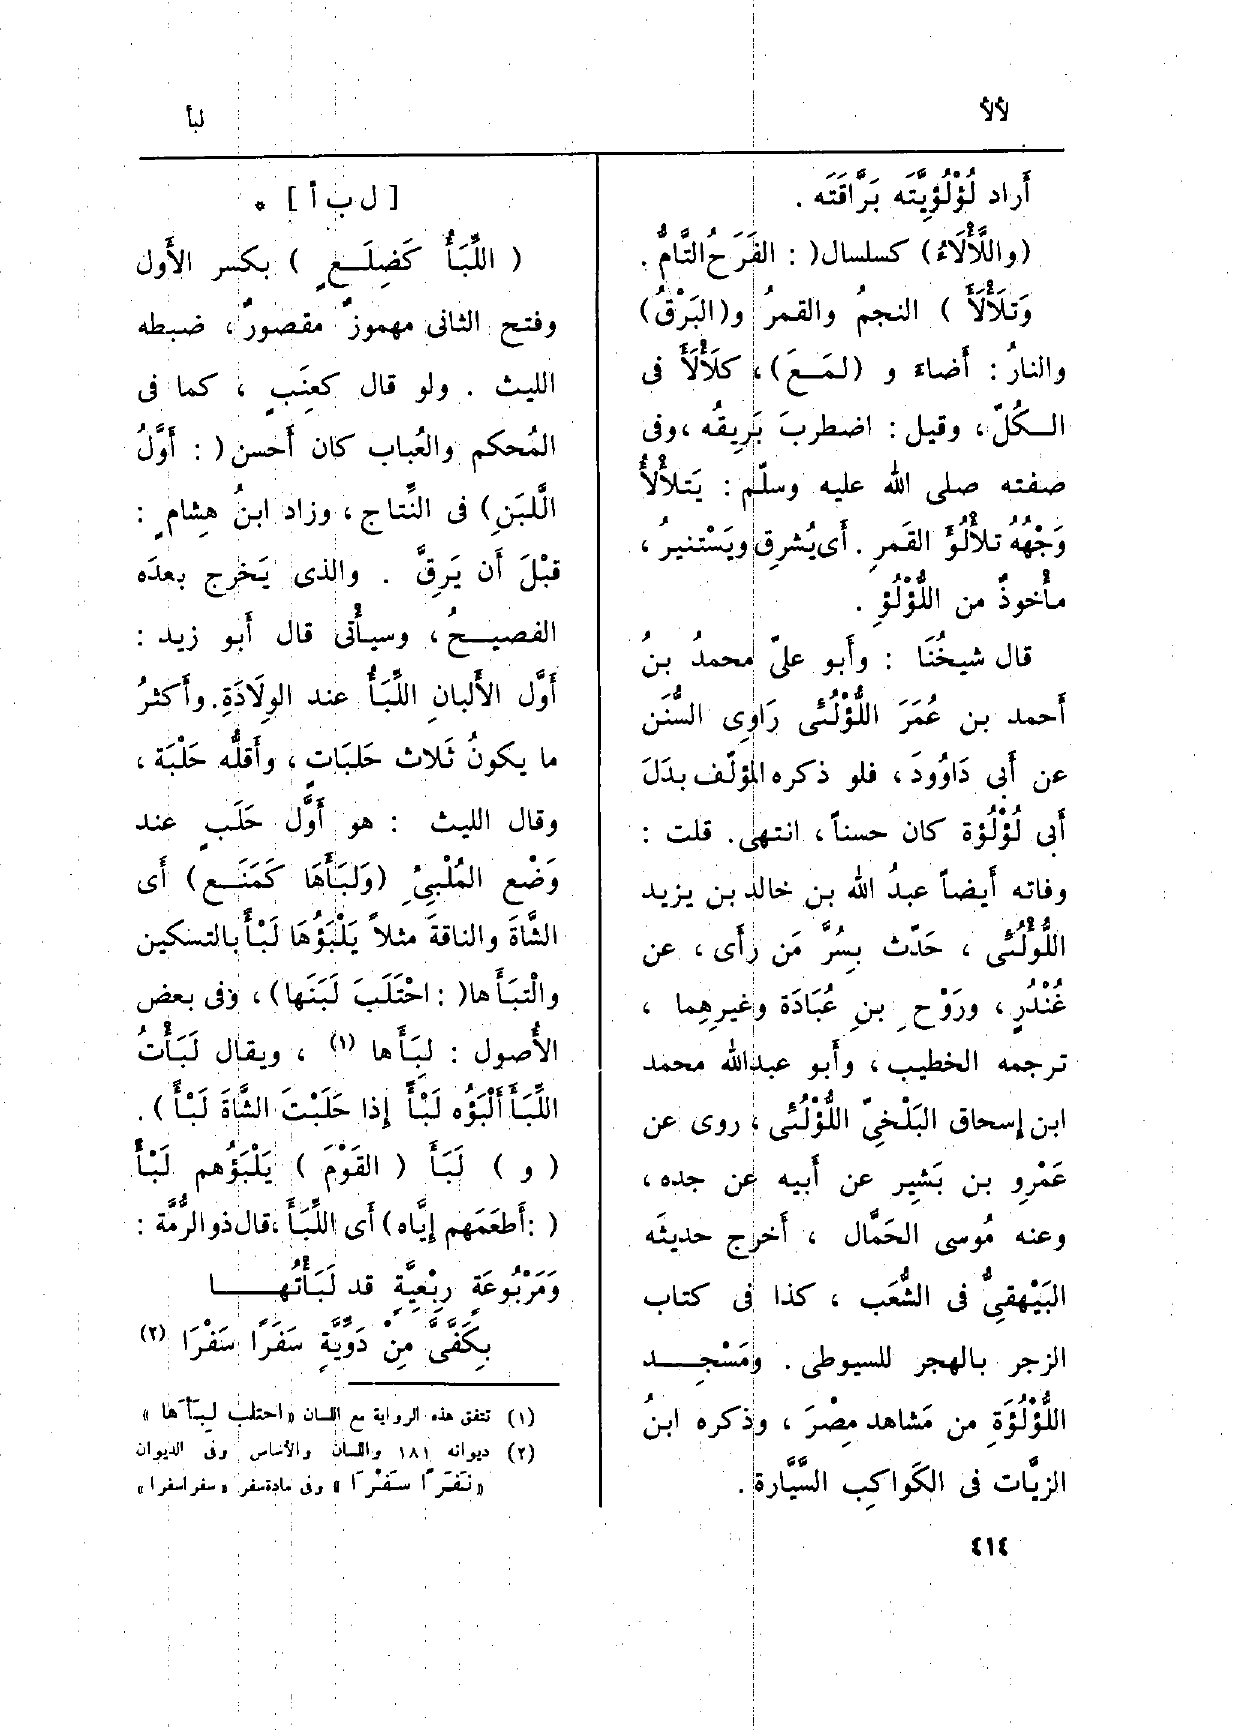 لألأ
لبأ
أَراد لُؤْلُؤِيَّتَه بَرَّاقَتَه .
(واللَّأْلَاءُ) كسلسال( : الفَرَحُ التَّامُّ .
وَتلَأْلَأَ ) النجمُ والقمرُ و(البَرْقُ)
والنارُ : أَضاءَ و (لمَــعَ) ، كَلأْلأَ فى
الــكُلّ ، وقيل : اضطربَ بَرِيقُه ، وفى
صفته صلى الله عليه وسلّم : يَتلأْلأُ
وَجْهُهُ تلأْلُؤَ القَمرِ . أَى يُشرِق ويَسْتنيرُ ،
مأْخوذٌ من اللُّؤْلُؤِ .
قال شيخُنَا : وأَبو علىّ محمدُ بنُ
أَحمد بن عُمَرَ اللُّؤْلُئى رَاوِى السُّنَن
عن أَبى دَاوُودَ ، فلو ذكره المؤلّف بدَلَ
أَبى لُؤْلُؤة كان حسناً ، انتهى. قلت :
وفاته أَيضاً عبدُ الله بن خالد بن يزيد
اللُّؤْلُئى ، حَدّث بِسُرَّ مَن رأَى ، عن
غُنْدُرٍ ، ورَوْح بنِ عُبَادَة وغيرِهِما ،
ترجمه الخطيب ، وأَبو عبدالله محمد
ابن إِسحاق البَلْخِىّ اللُّؤْلُئى ، روى عن
عَمْرِو بن بَشِير عن أَبيه عن جده ،
وعنه مُوسى الحَمَّال ، أَخرج حديثَه
البَيْهقِىُّ فى الشُّعَب ، كذا فى كتاب
الزجر بالهجر للسيوطى . ومَسْجِــد
اللُّؤْلُؤَةِ من مَشاهد مِصْرَ ، وذكره ابنُ
الزيَّات فى الكَواكِب السَّيَّارة .
[ل ب أ] *
( اللِّبَأُ كَضِلَــعٍ ) بكسر الأَول
وفتح الثانى مهموزٌ مقصورٌ ، ضبطه
الليث . ولو قال كعِنَبٍ ، كما فى
المُحكم والعُباب كان أَحسن( : أَوَّلُ
اللَّبَنِ) فى النِّتاج ، وزاد ابنُ هِشامٍ :
قبْلَ أَن يَرِقَّ . والذى يَخرج بعدَه
الفصيــحُ ، وسيأْتى قال أَبو زيد :
أَوَّل الأَلبانِ اللِّبَأُ عند الوِلَادَةِ. وأَكثرُ
ما يكونُ ثَلاث حَلَبَاتٍ ، وأَقلُّه حَلْبَة ،
وقال الليث : هو أَوَّل حَلَبٍ عند
وَضْعِ المُلْبِئِ (وَلَبَأَهَا كَمَنَــع) أَى
الشَّاةَ والناقةَ مثلاً يَلْبَؤُهَا لَبْأً بالتسكين
والْتَبَأَها( : احْتَلَبَ لَبَنَها) ، وفى بعض
الأُصول : لِبَأَها (١) ، ويقال لَبَأْتُ
اللِّبَأَ أَلْبَؤُه لَبْأً إِذا حَلَبْتَ الشَّاةَ لَبْأً ) .
( و ) لَبَأَ ( القَوْمَ ) يَلْبَؤُهم لَبْأً
( :أَطعَمَهم إِيَّاه) أَى اللِّبَأَ ، قال ذو الرُّمَّة :
وَمَرْبُوعَةٍ رِبْعِيَّةٍ قد لَبَأْتُهــا
بِكَفَّىَّ مِنْ دَوِّيَّةٍ سَفَرًا سَفْرَا (٢)
(١) تتفق هذه الرواية مع اللسان « احتلب لِبَأَها »
(٢) ديوانه ١٨١ واللسان والأساس وفى الديوان
« نَفَرًا سَفْرَا » وفى مادة سفر « سفرا سفرا »
٤١٤